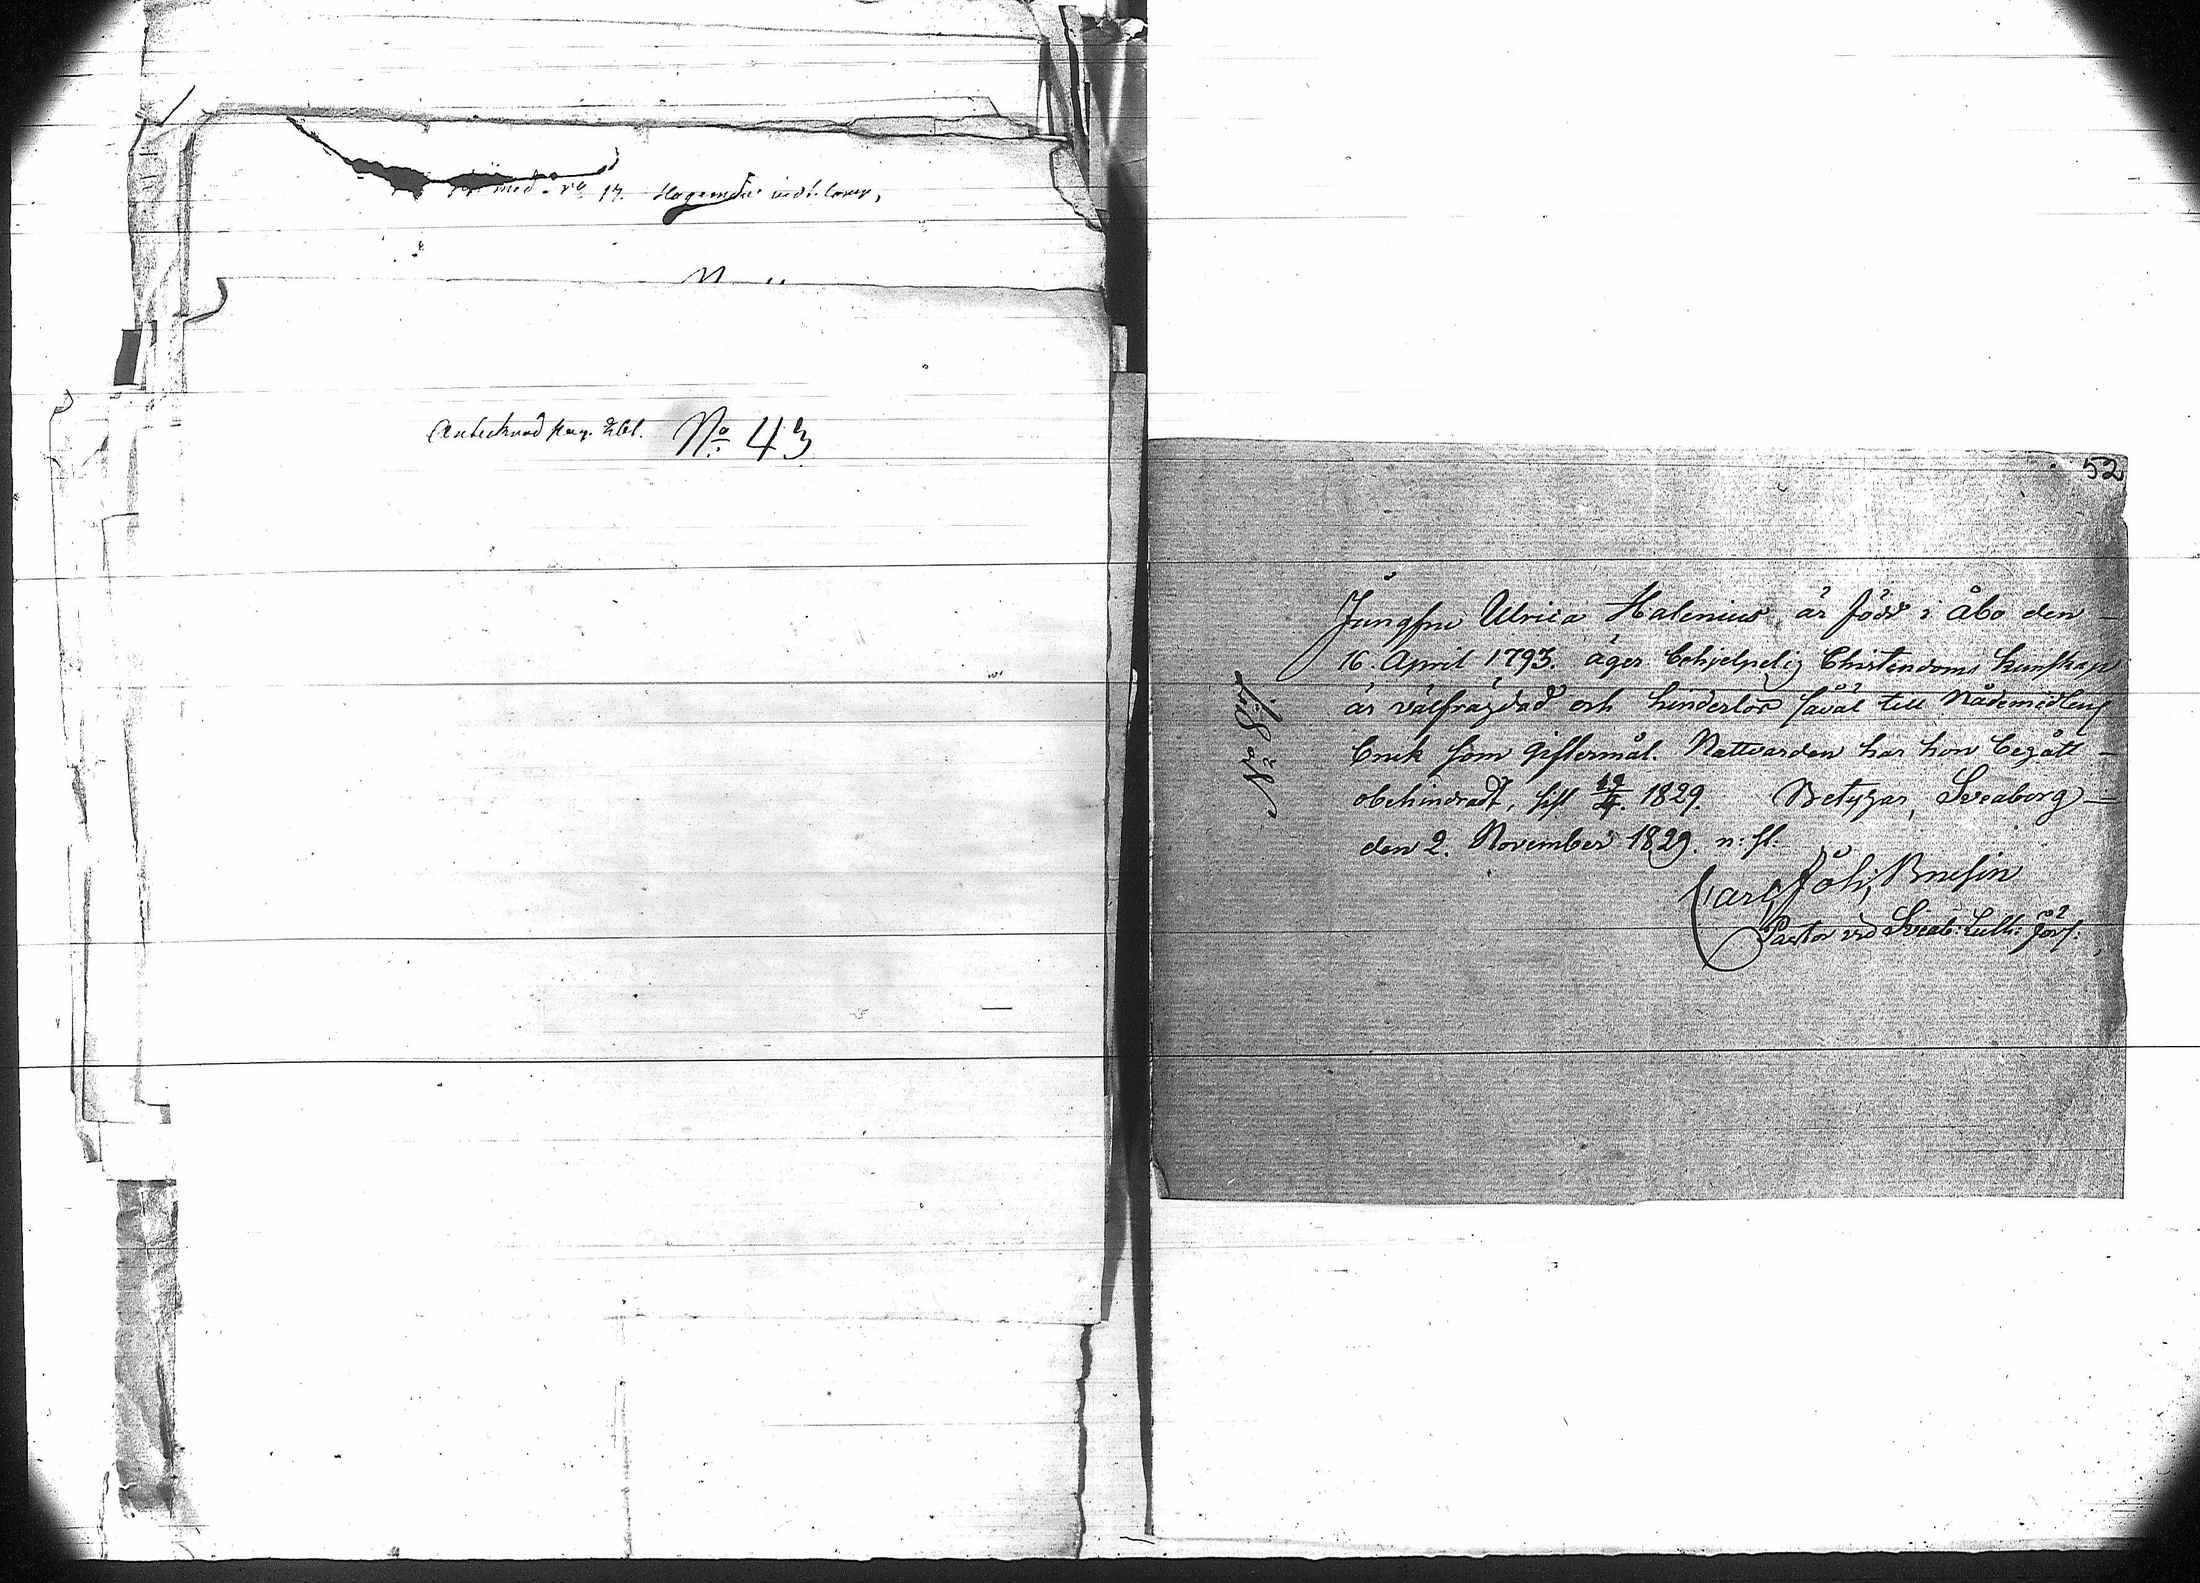 med N:o 17.
Antecknad pag. 261. N:o 43
52
N:o 87.
Jungfru Ulrica Halenius är född i Åbo den
16. April 1793. äger behjelpelig Christendoms kunskap
är välfrägdad och hinderlös såväl till Nådemedlens
bruk som giftermål. Nattvarden har hon begått
obehindradt, sist 1829. Betygar, Sveaborg
den 2. November 1829. n: st:
Carl Joh: Brusin
Pastor vid Sveab: Luth: Förs: